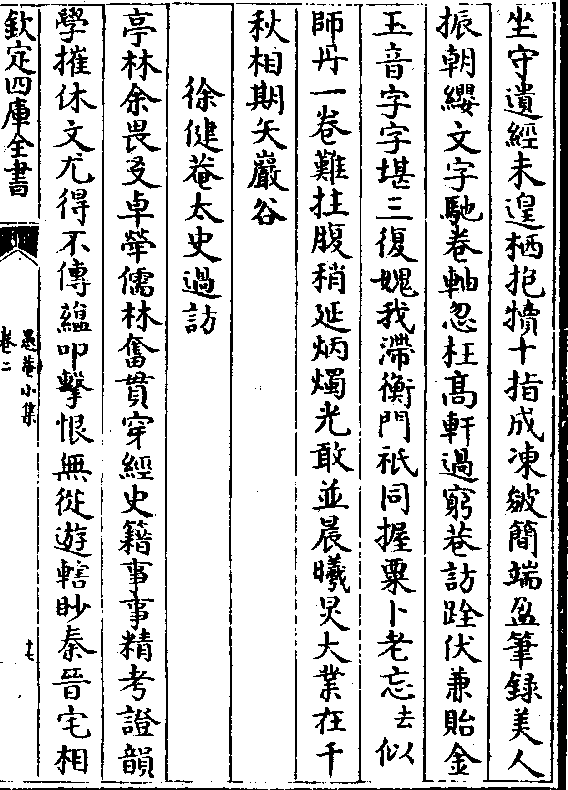 坐守遺經未遑栖抱犢十指成凍皴簡端盈筆錄美人
振朝纓文字馳卷軸忽枉高軒過窮巷訪跧伏兼貽金
玉音字字堪三復媿我滯衡門祇同握粟卜老忘去似
師丹一卷難拄腹稍延炳燭光敢並晨曦炅大業在千
秋相期矢巖谷
徐健菴太史過訪
亭林余畏友卓犖儒林奮貫穿經史籍事事精考證韻
學摧休文尤得不傳蘊叩擊恨無從遊轄眇秦晉宅相
欽定四庫全書
愚菴小集
卷二
十七